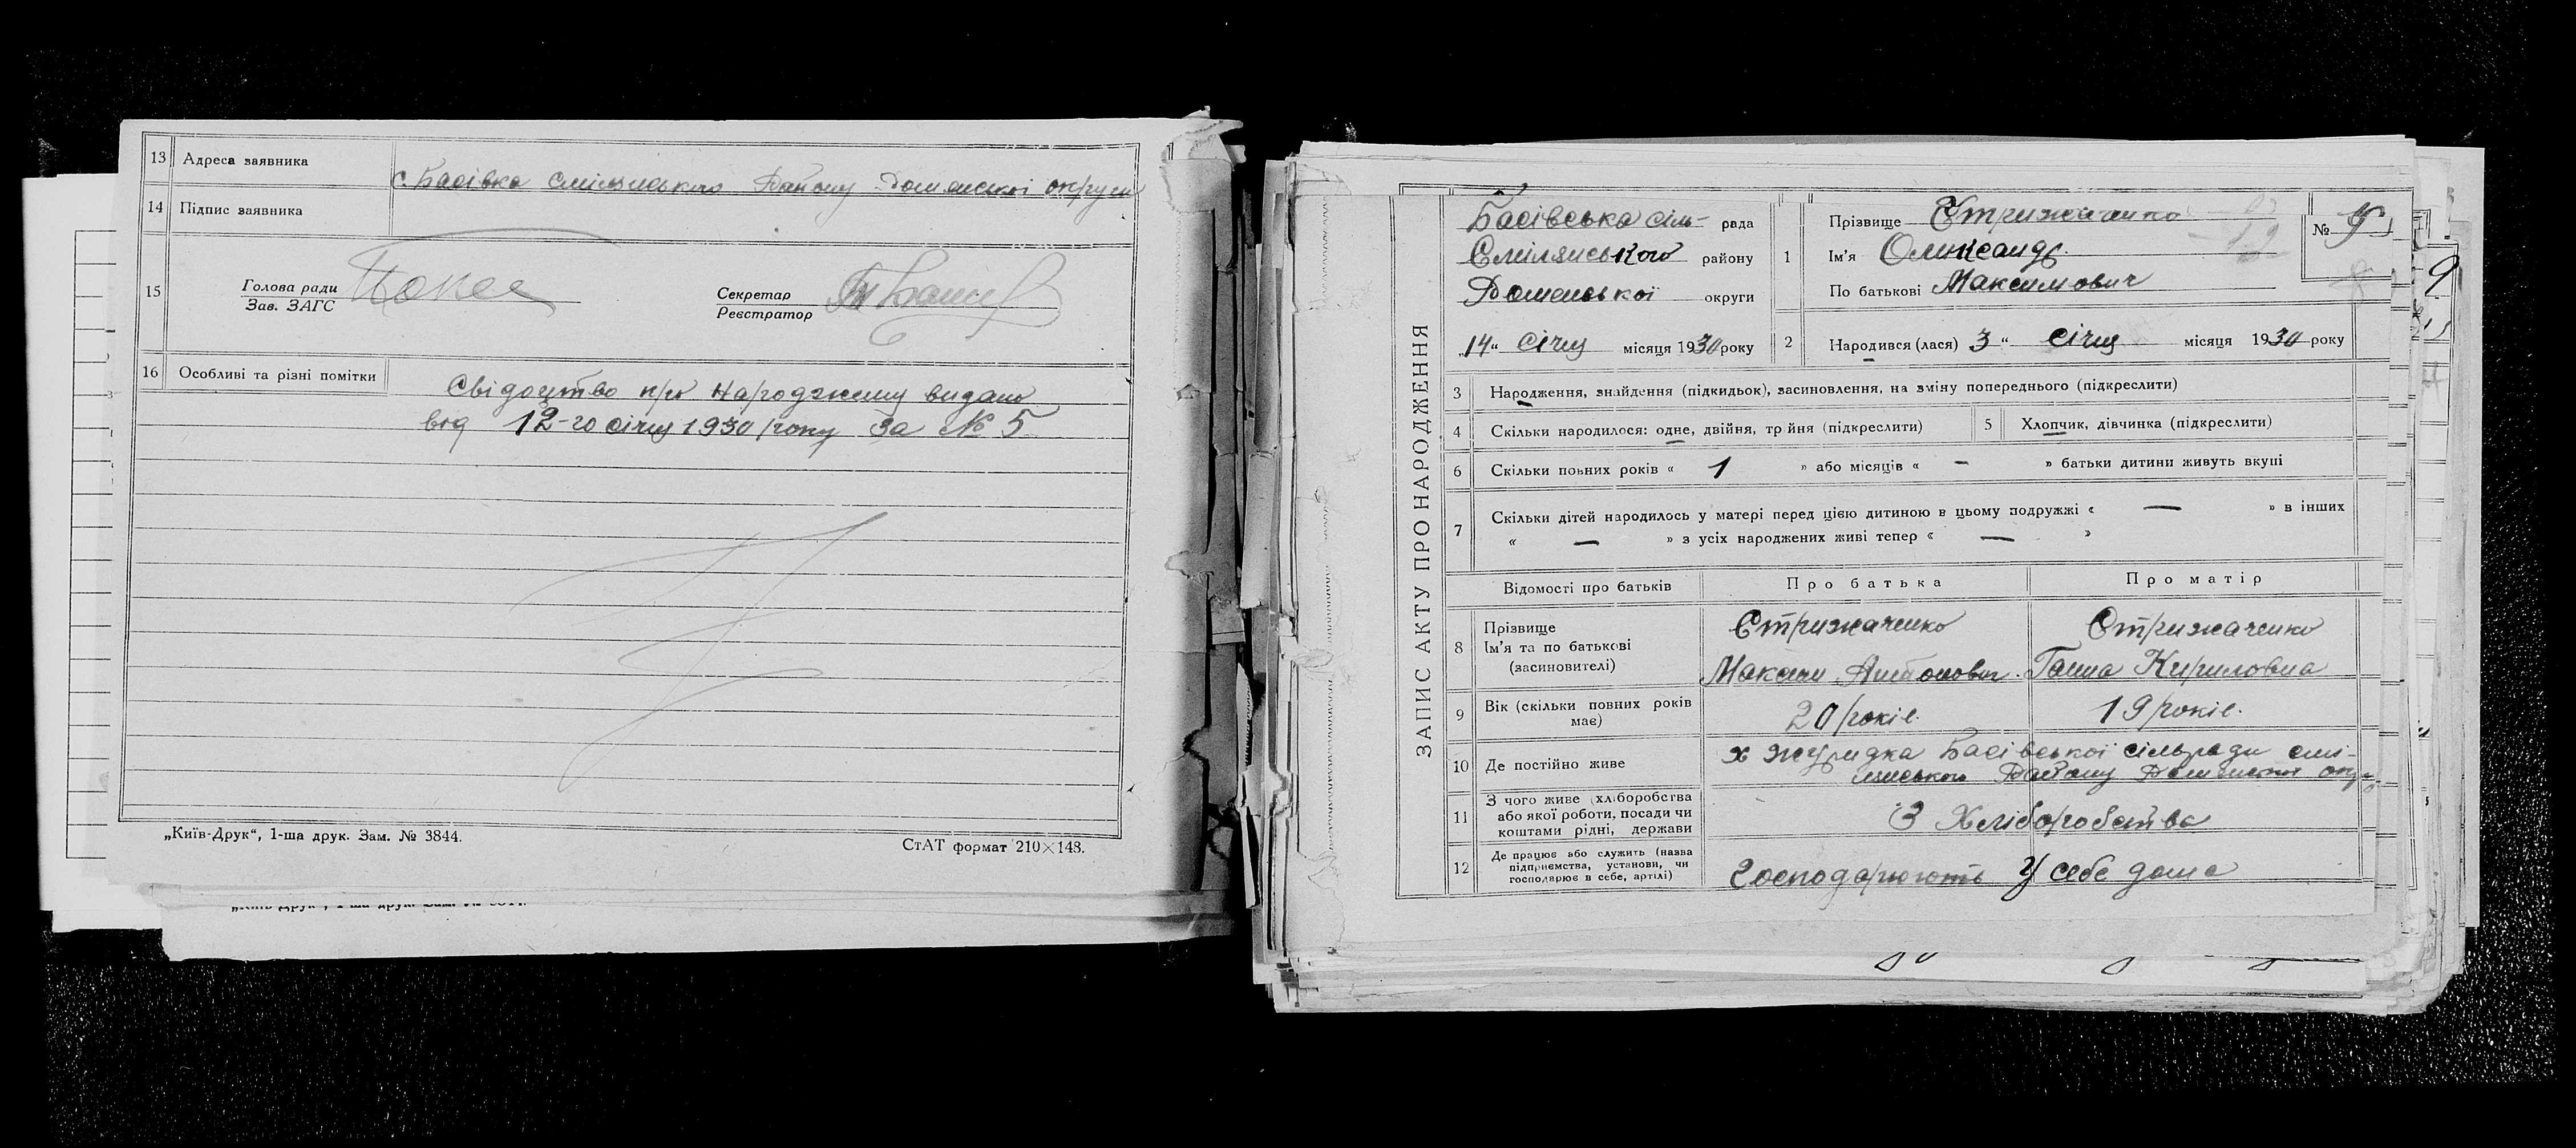 13 Адреса заявника
с. Басівка Смілянського Району Роменської округи
14 Підпис заявника
15 Голова ради
Зав. ЗАГС
Секретар
Реєстратор
16 Особливі та різні помітки
Свідоцтво про Народженну видано
від 12-го січня 1930 року За № 5
„Київ-Друк“, 1-ша друк. Зам. № 3844.
СтАТ формат 210×148.
ЗАПИС АКТУ ПРО НАРОДЖЕННЯ
Басівська сіль- рада
Смілянського району
Роменської округи
„14“ січня місяця 1930 року
1 Прізвище Стрижаченко
Ім'я Олександр
По батькові Максимович
№
9
2 Народився (лася) 3 “ січня місяця 1930 року
3 Народження, знайдення (підкидьок), засиновлення, на зміну попереднього (підкреслити)
4 Скільки народилося: одне, двійня, трійня (підкреслити) 5 Хлопчик, дівчинка (підкреслити)
6 Скільки повних років « 1 » або місяців « – » батьки дитини живуть вкупі
7 Скільки дітей народилось у матері перед цією дитиною в цьому подружжі « — » в інших
« — » з усіх народжених живі тепер « — »
Відомості про батьків Про батька Про матір
8 Прізвище
Ім'я та по батькові
(засиновителі)
Стрижаченко Стрижаченко
Максим Антонович. Ганна Кириловна
9 Вік (скільки повних років
має)
20 років. 19 років.
10 Де постійно живе
х Журидка Басівської сільради смі-
лянського Району Роменської окру
11 З чого живе (хліборобства
або якої роботи, посади чи
коштами рідні, держави
З Хліборобства
12 Де працює або служить (назва
підприємства, установи, чи
господарює в себе, артілі)
Господарюють У себе дома